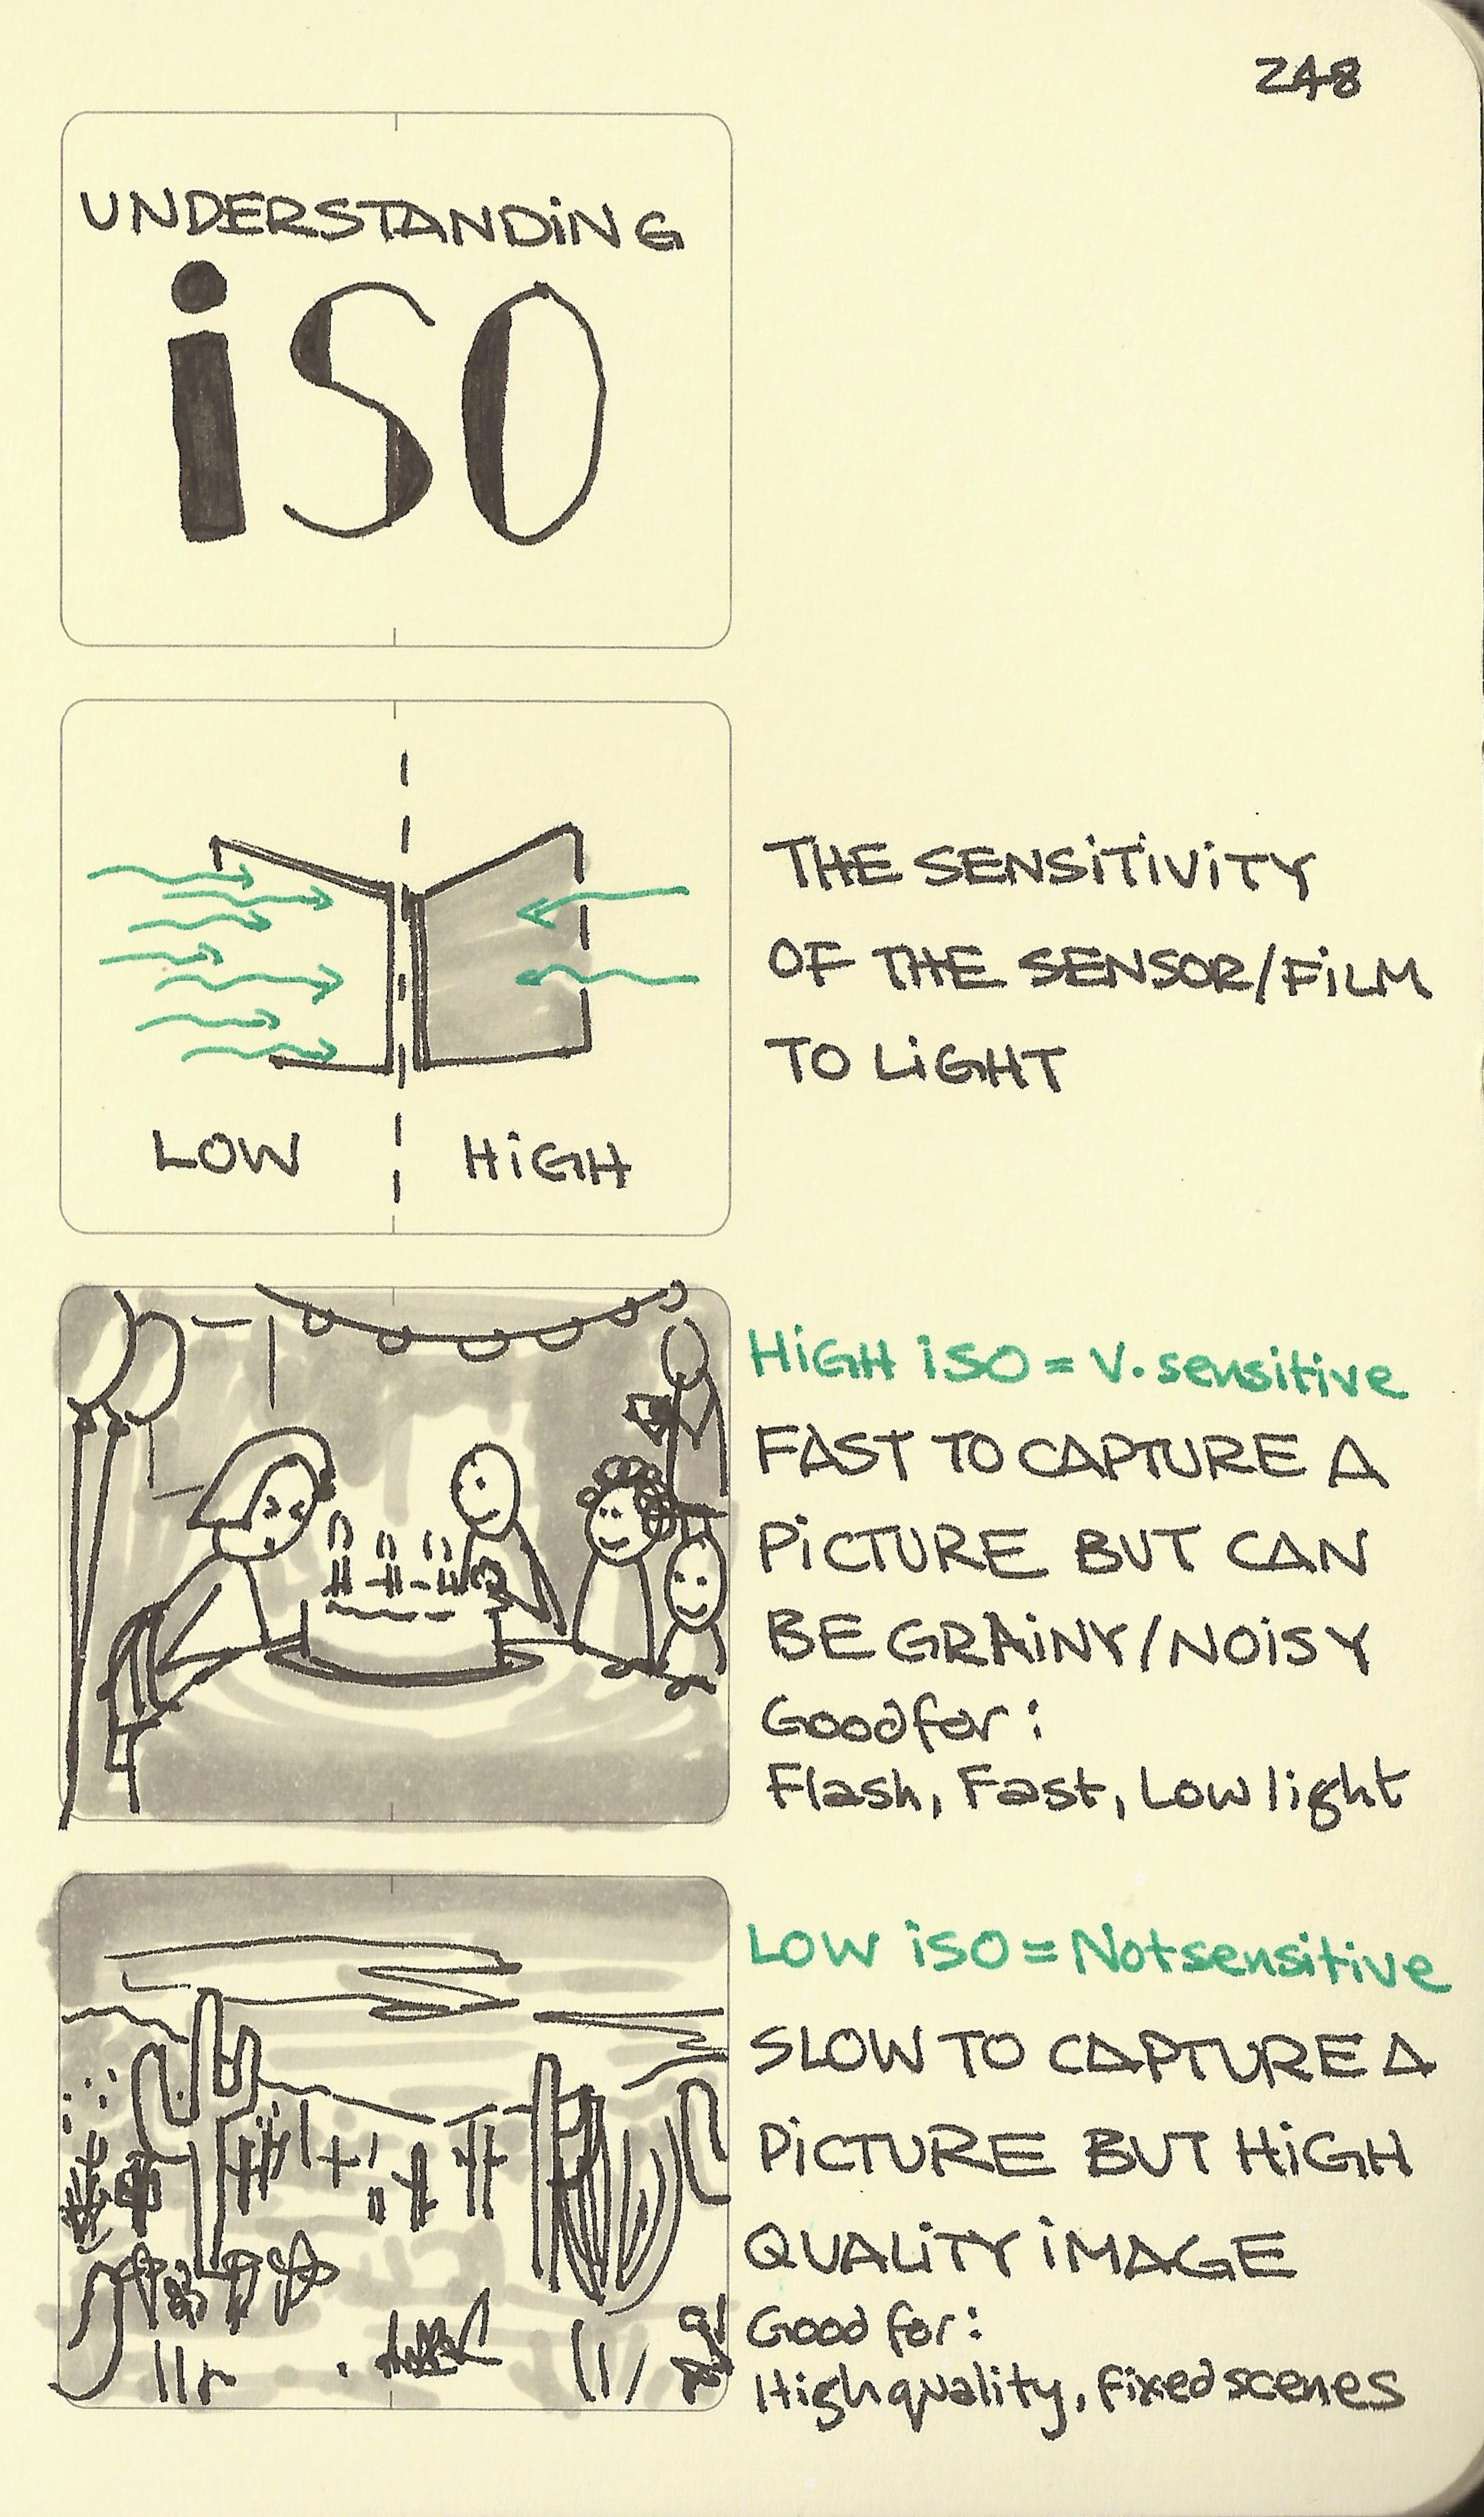 248
UNDERSTANDiNG
iSO
LOW
HiGH
THE SENSiTiViTY
OF THE SENSOR/FiLM
TO LiGHT
HiGH iSO = V. sensitive
FAST TO CAPTURE A
PiCTURE BUT CAN
BE GRAiNY/NOiSY
Good for:
Flash, Fast, Low light
LOW iSO = Not sensitive
SLOW TO CAPTURE A
PiCTURE BUT HiGH
QUALiTY iMAGE
Good for:
High quality, fixed scenes